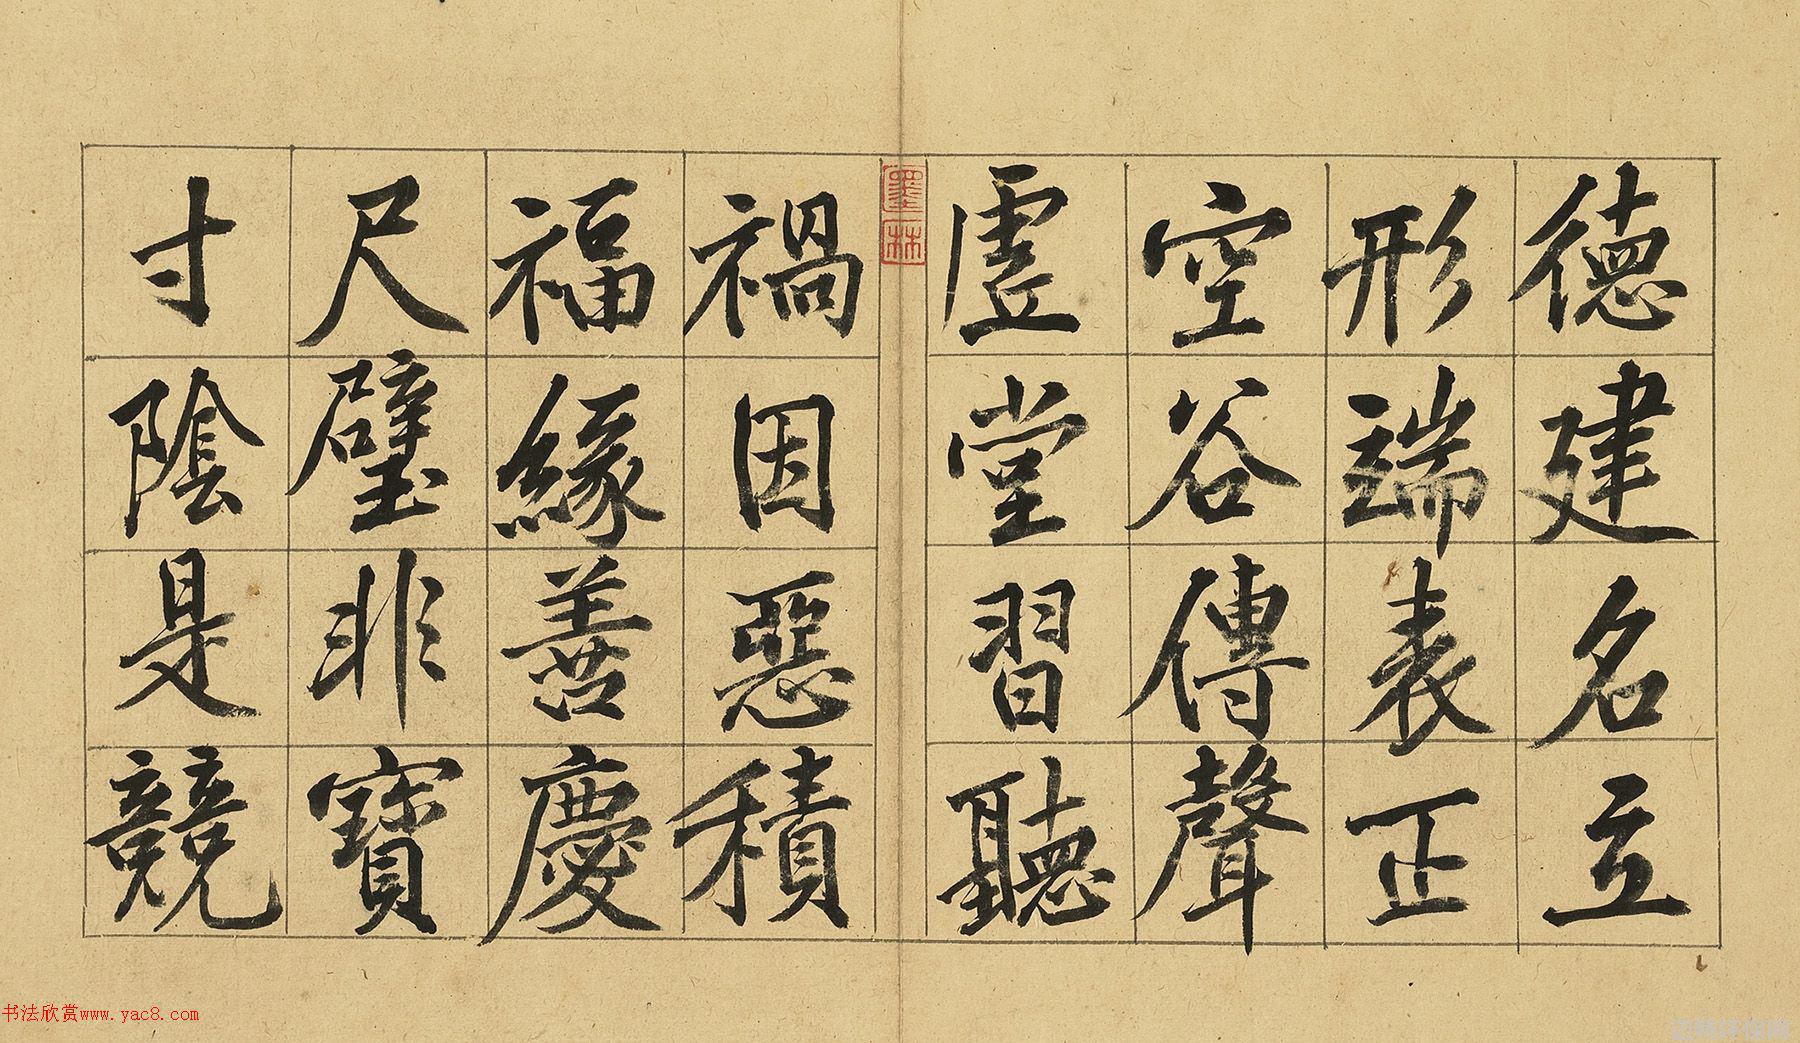 德建名立
形端表正
空谷傳聲
虛堂習聽
墨林
禍因惡積
福緣善慶
尺璧非寶
寸陰是競
书法欣赏www.yac8.com